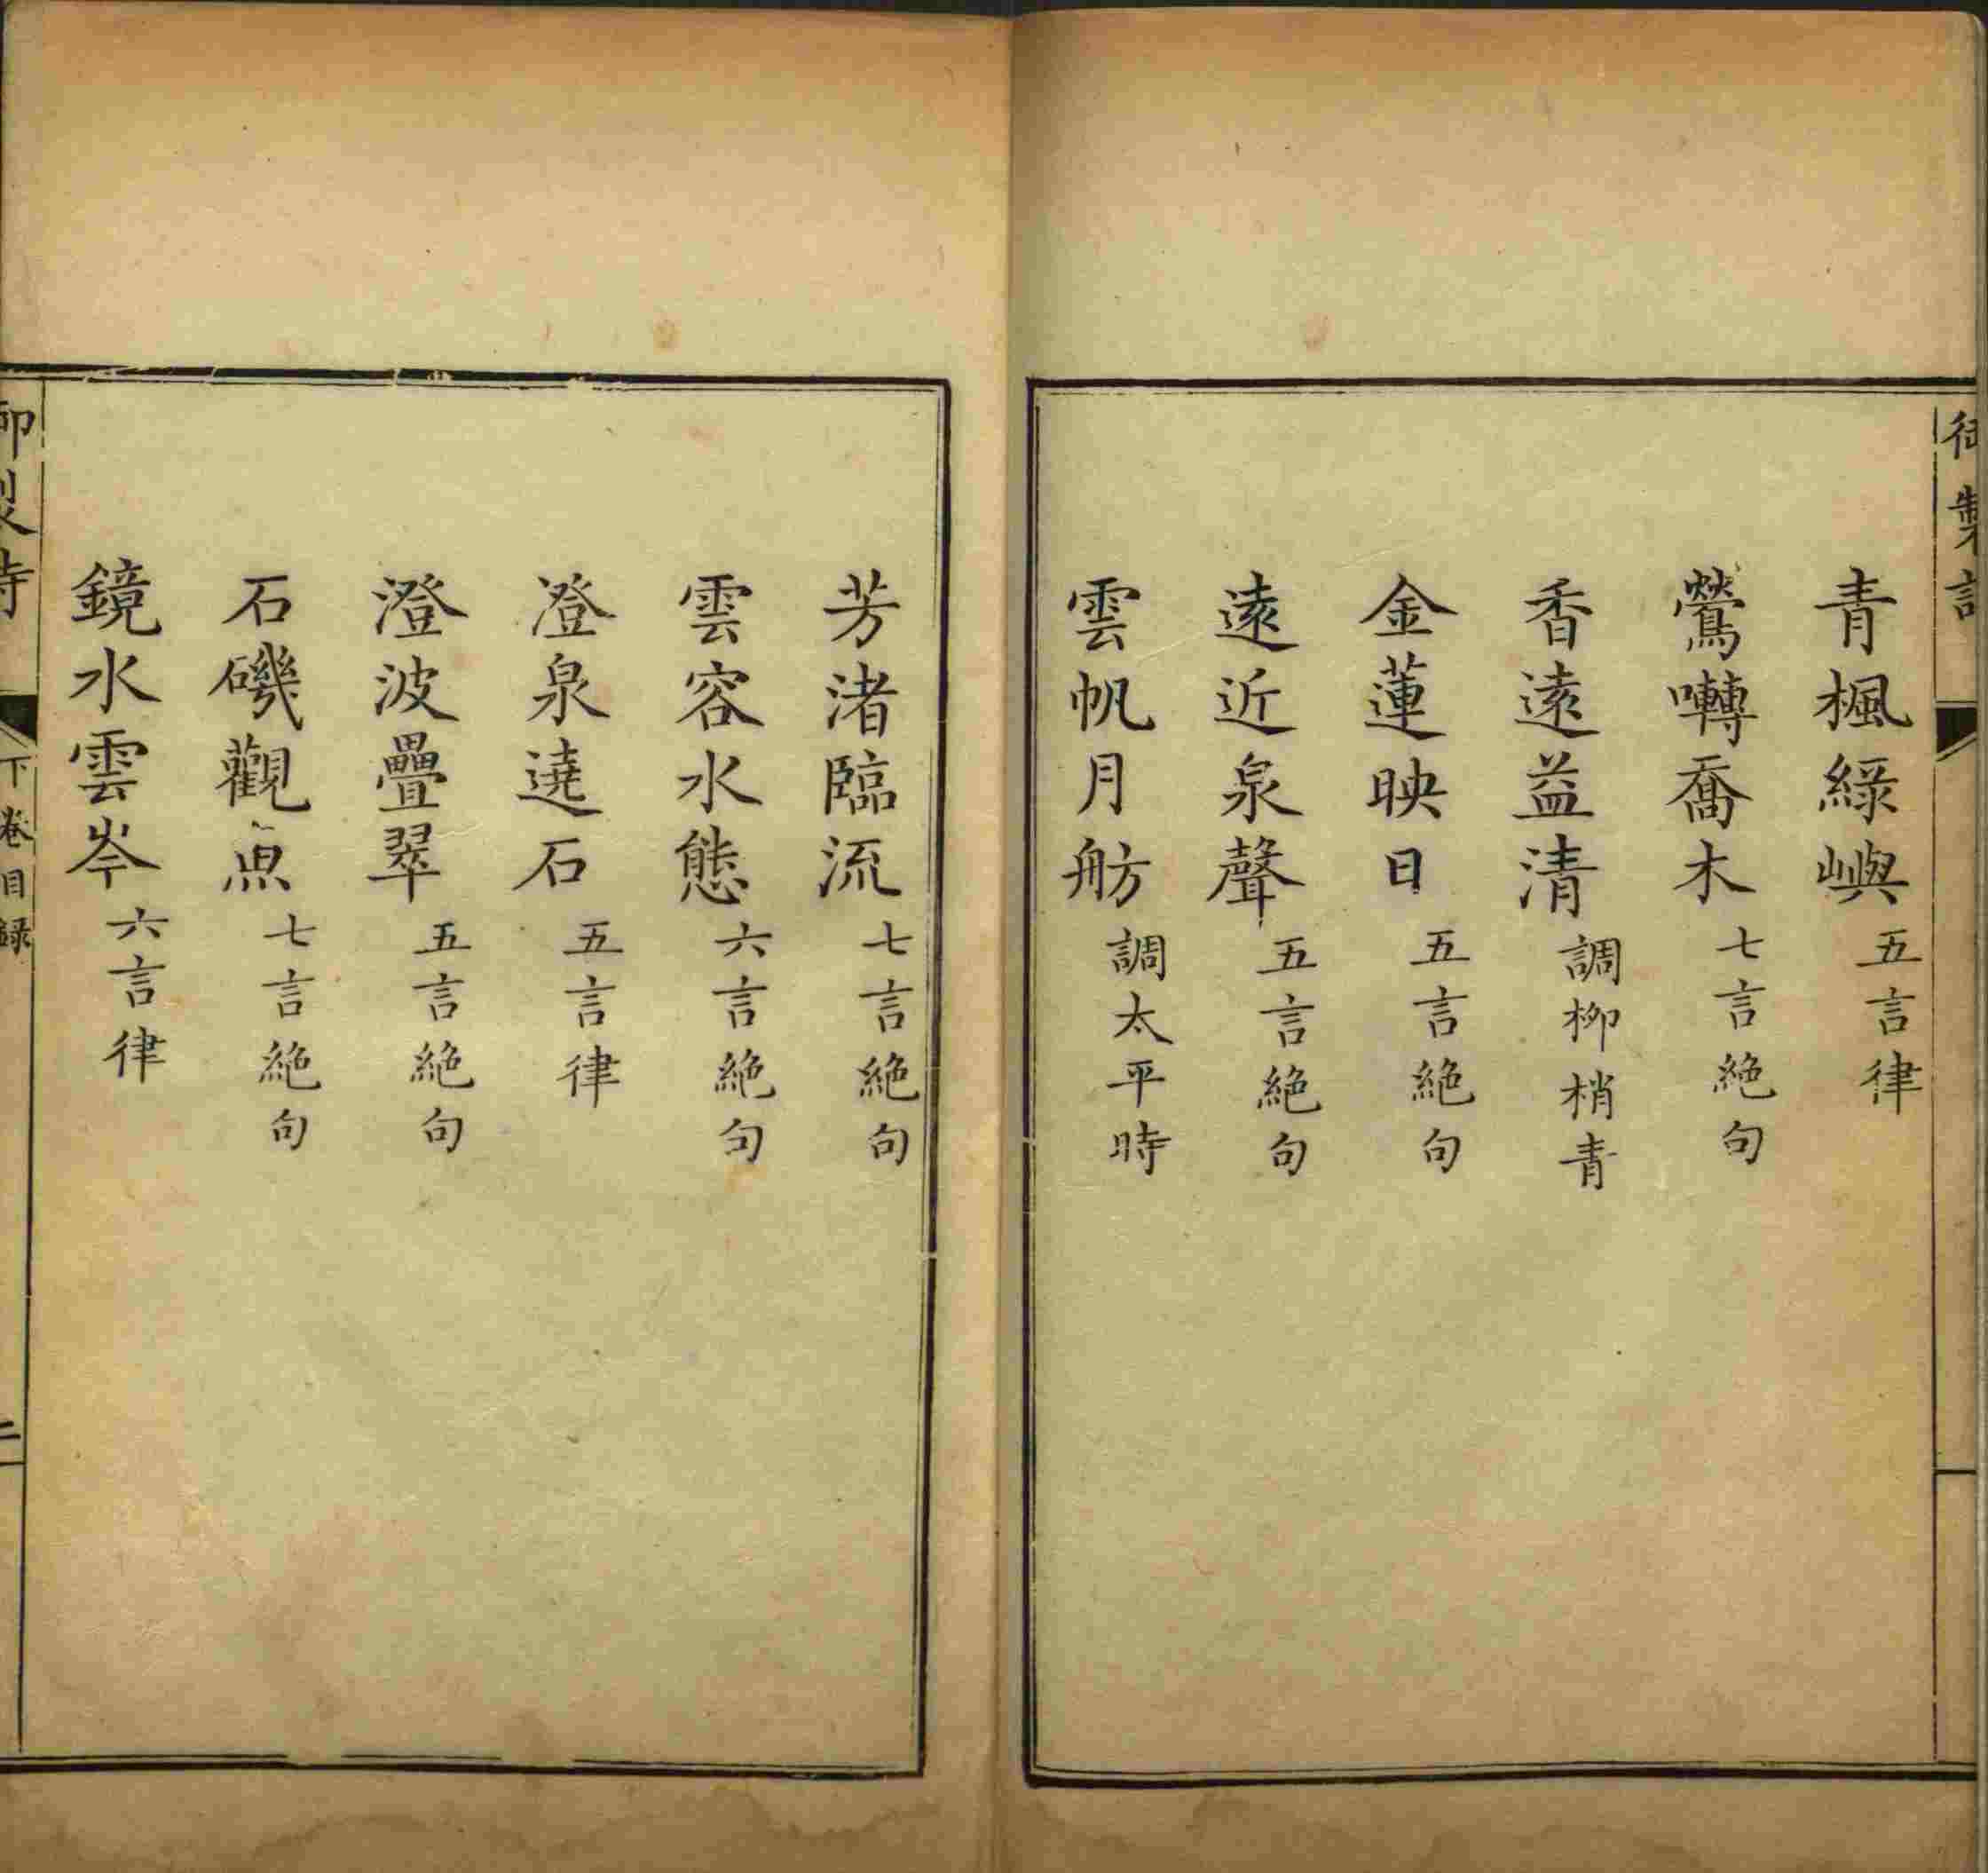 御製詩
青楓綠嶼五言律
鶯囀喬木七言絶句
香遠益清調柳梢青
金蓮映日五言絶句
遠近泉聲五言絶句
雲帆月舫調太平時
芳渚臨流七言絶句
雲容水態六言絶句
澄泉遶石五言律
澄波疊翠五言絶句
石磯觀魚七言絶句
鏡水雲岑六言律
御製詩 下卷目録 二